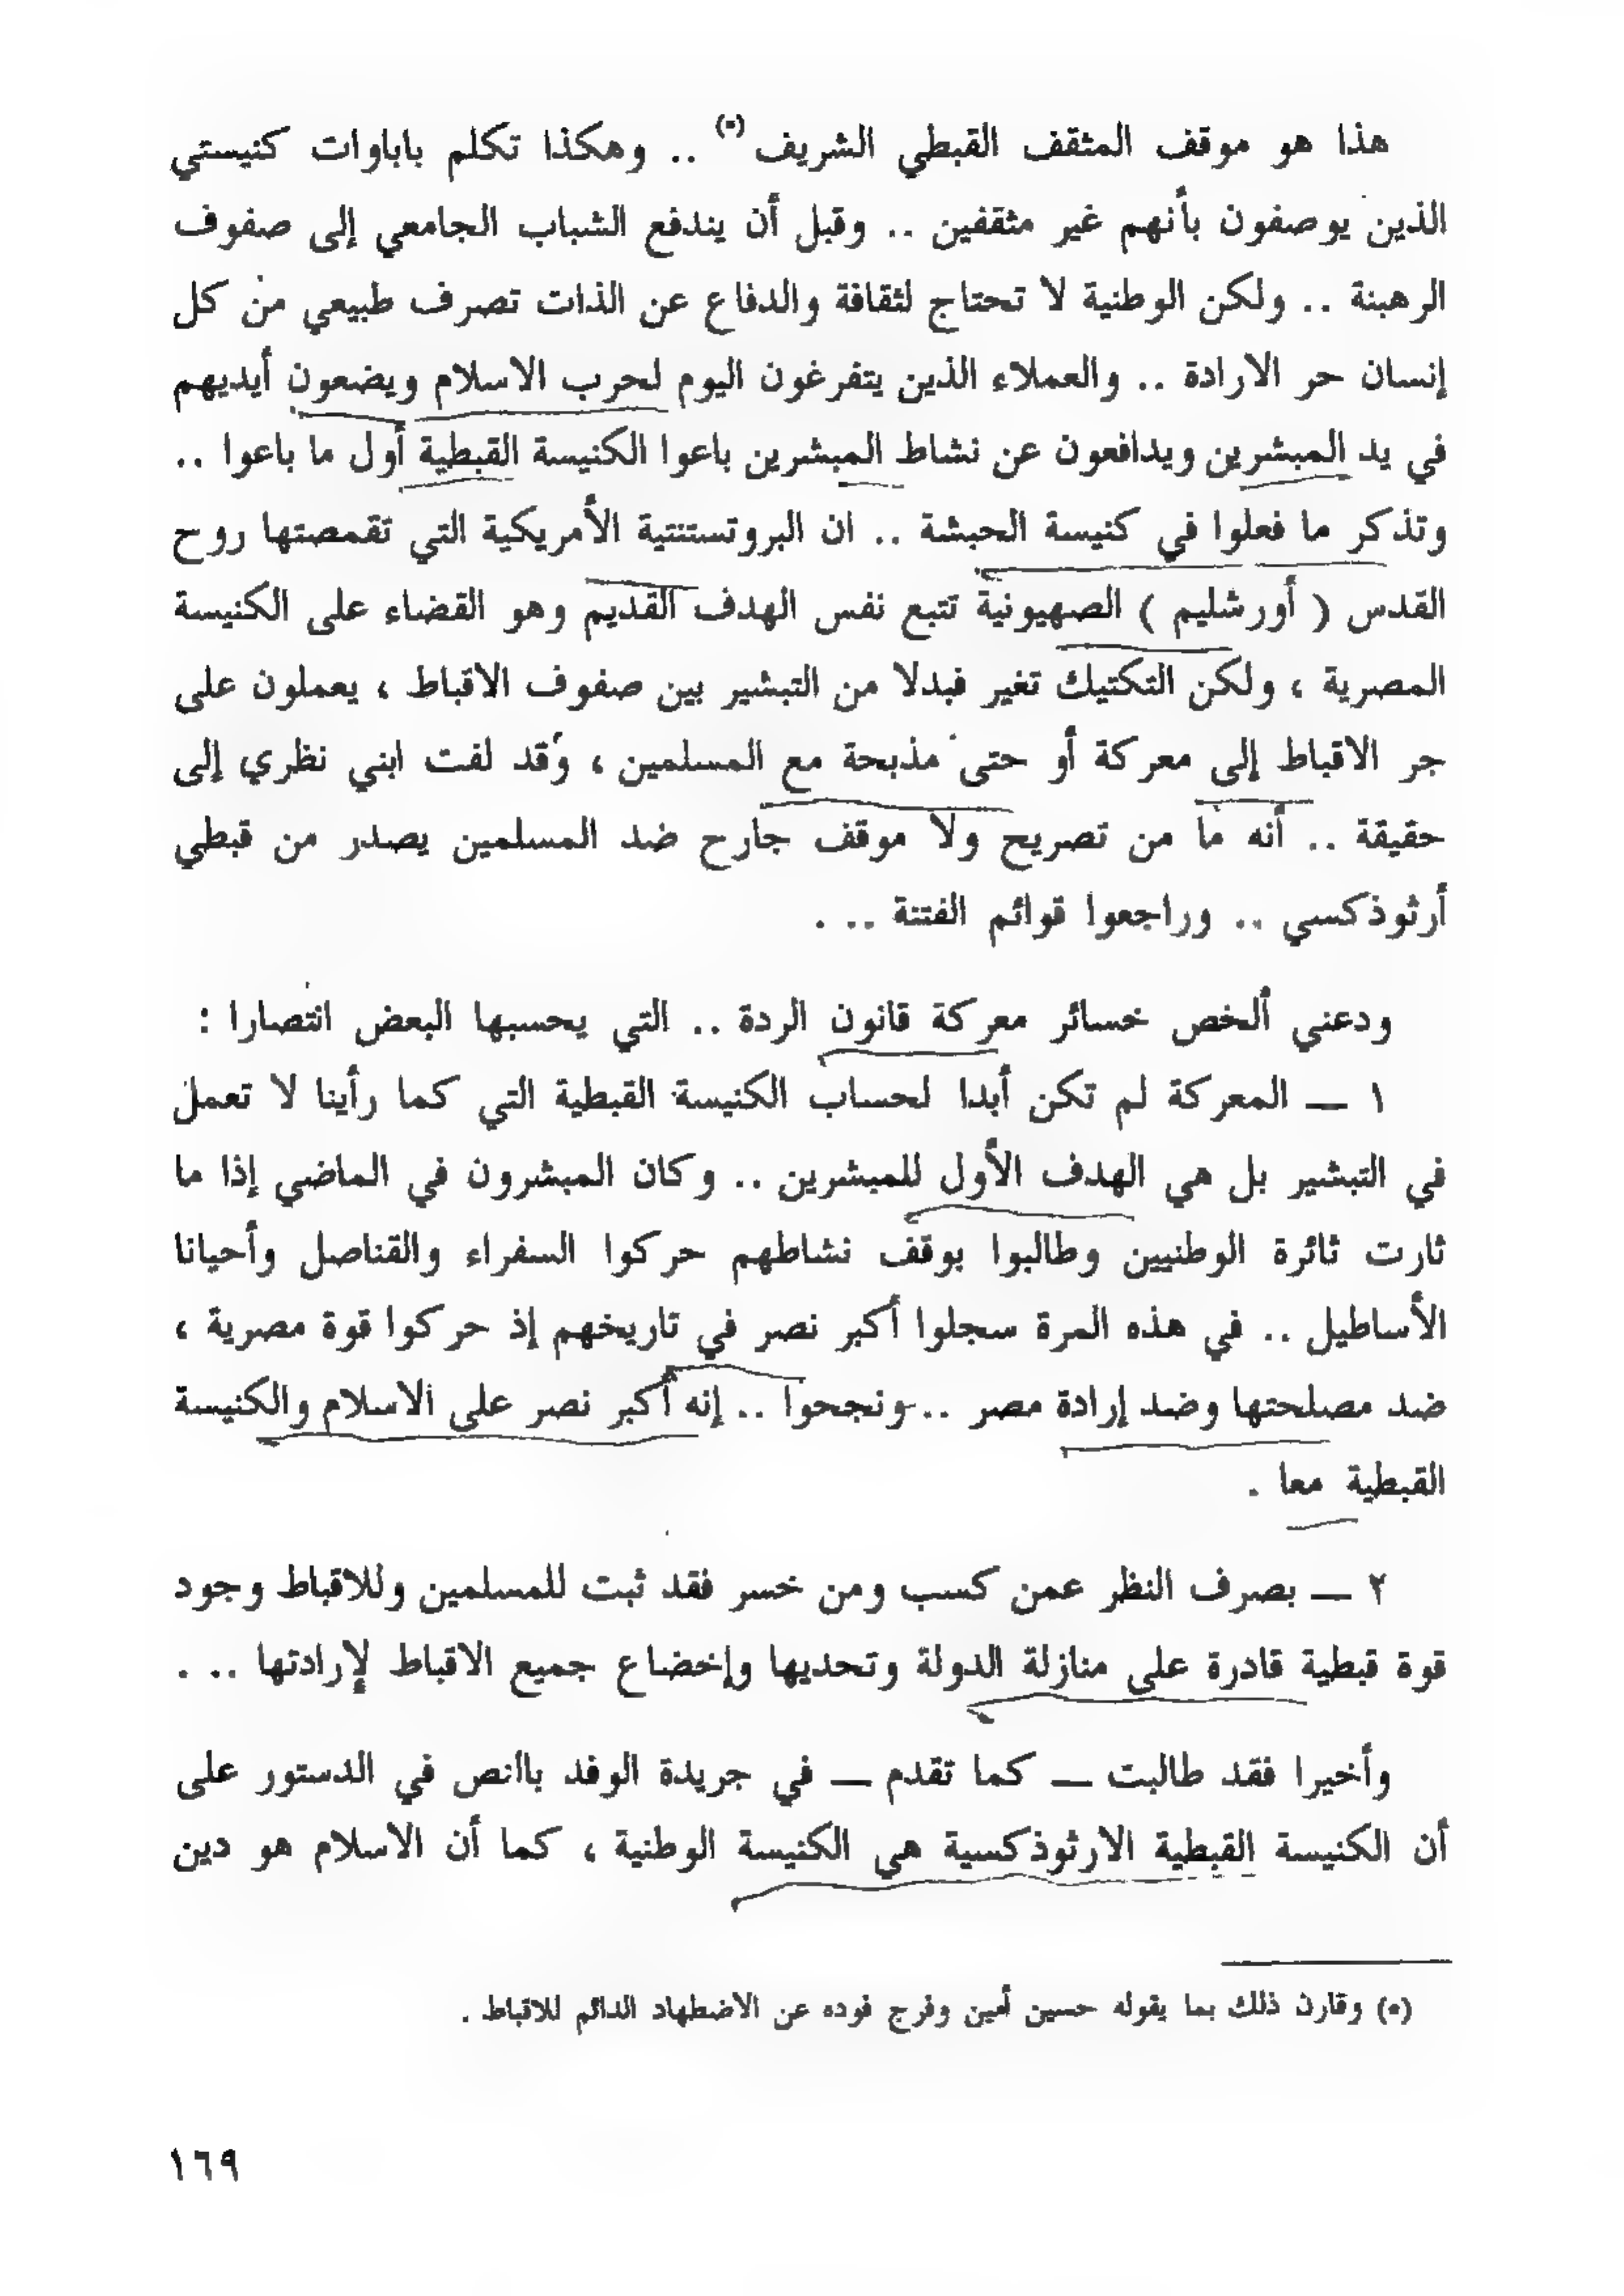 هذا هو موقف المثقف القبطي الشريف (*) .. وهكذا تكلم باباوات كنيستي
الذين يوصفون بأنهم غير مثقفين .. وقبل أن يندفع الشباب الجامعي إلى صفوف
الرهبنة .. ولكن الوطنية لا تحتاج لثقافة والدفاع عن الذات تصرف طبيعي من كل
إنسان حر الارادة .. والعملاء الذين يتفرغون اليوم لحرب الاسلام ويضعون أيديهم
في يد المبشرين ويدافعون عن نشاط المبشرين باعوا الكنيسة القبطية أول ما باعوا ..
وتذكر ما فعلوا في كنيسة الحبشة .. ان البروتستنتية الأمريكية التي تقمصتها روح
القدس ( أورشليم ) الصهيونية تتبع نفس الهدف القديم وهو القضاء على الكنيسة
المصرية ، ولكن التكتيك تغير فبدلا من التبشير بين صفوف الاقباط ، يعملون على
جر الاقباط إلى معركة أو حتى مذبحة مع المسلمين ، وقد لفت ابني نظري إلى
حقيقة .. أنه ما من تصريح ولا موقف جارح ضد المسلمين يصدر من قبطي
أرثوذكسي .. وراجعوا قوائم الفتنة .. .
ودعني ألخص خسائر معركة قانون الردة .. التي يحسبها البعض انتصارا :
١ — المعركة لم تكن أبدا لحساب الكنيسة القبطية التي كما رأينا لا تعمل
في التبشير بل هي الهدف الأول للمبشرين .. وكان المبشرون في الماضي إذا ما
ثارت ثائرة الوطنيين وطالبوا بوقف نشاطهم حركوا السفراء والقناصل وأحيانا
الأساطيل .. في هذه المرة سجلوا أكبر نصر في تاريخهم إذ حركوا قوة مصرية ،
ضد مصلحتها وضد إرادة مصر .. ونجحوا .. إنه أكبر نصر على الاسلام والكنيسة
القبطية معا .
٢ — بصرف النظر عمن كسب ومن خسر فقد ثبت للمسلمين وللاقباط وجود
قوة قبطية قادرة على منازلة الدولة وتحديها وإخضاع جميع الاقباط لإرادتها .. .
وأخيرا فقد طالبت — كما تقدم — في جريدة الوفد بالنص في الدستور على
أن الكنيسة القبطية الارثوذكسية هي الكنيسة الوطنية ، كما أن الاسلام هو دين
(*) وقارن ذلك بما يقوله حسين أمين وفرج فوده عن الاضطهاد الدائم للاقباط .
١٦٩